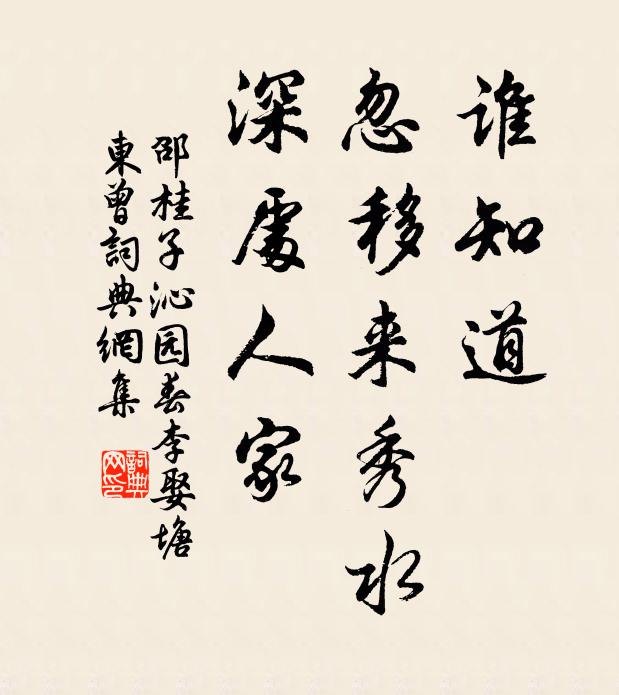 谁知道
忽移来秀水
深處人家
邵桂子沁园春李娶塘
東曾詞典網集
詞典网印